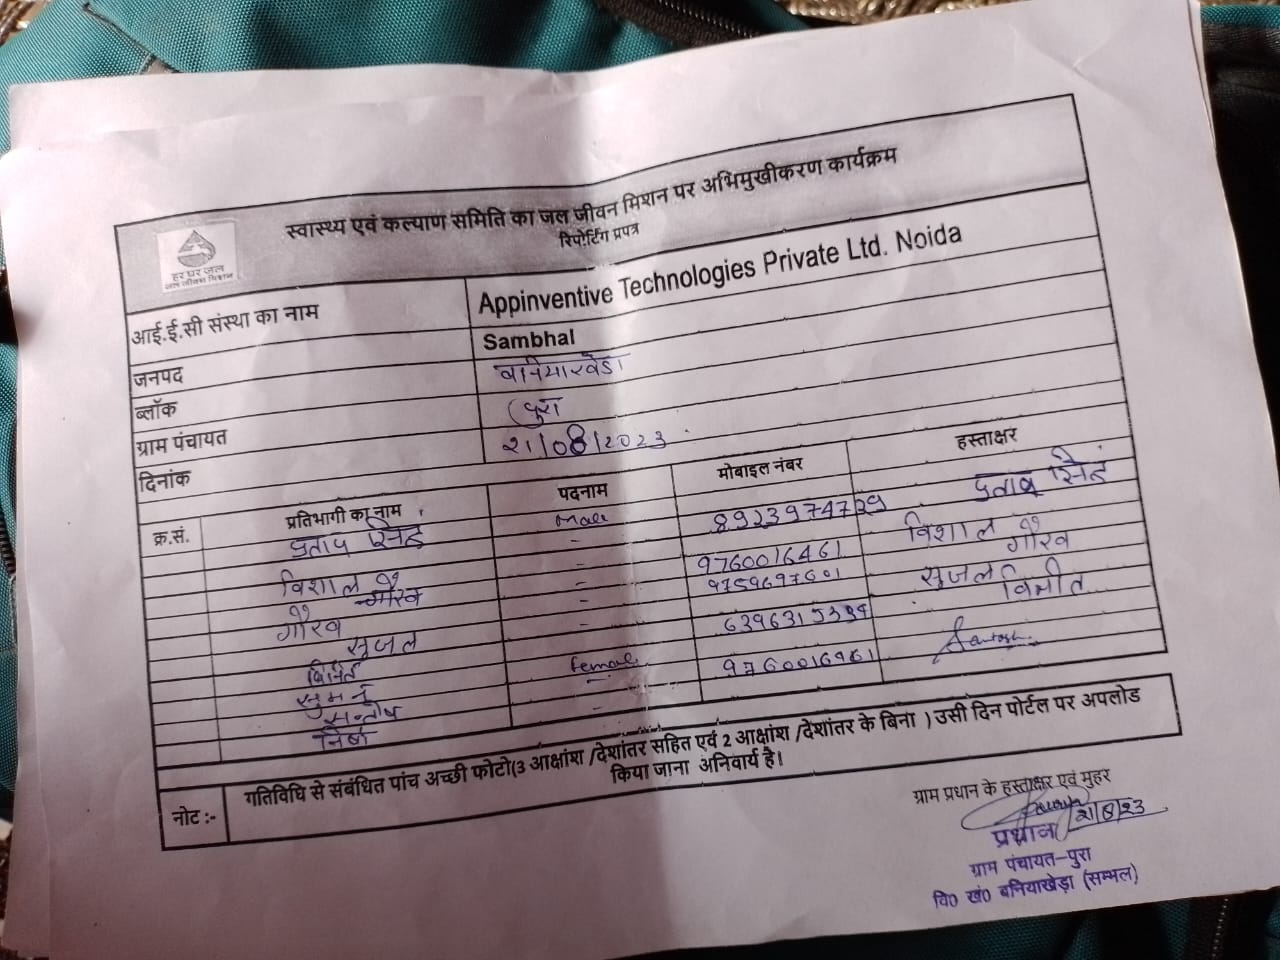 स्वास्थ्य एवं कल्याण समिति का जल जीवन मिशन पर अभिमुखीकरण कार्यक्रम
रिपोर्टिंग प्रपत्र
हर घर जल
जल जीवन मिशन
आई.ई.सी संस्था का नाम Appinventive Technologies Private Ltd. Noida
जनपद Sambhal
ब्लॉक बनियाखेडा
ग्राम पंचायत पुरा
दिनांक २१/08/2023
क्र.सं. प्रतिभागी का नाम पदनाम मोबाइल नंबर हस्ताक्षर
प्रताप सिंह Male 8923974729 प्रताप सिंह
विशाल - विशाल
गौरव - 9760016461 गौरव
सुजल - सुजल
विनित 6396315394 विनीत
सुमन Female
सन्तोष 9760016961 Santosh
निशा -
नोट :- गतिविधि से संबंधित पांच अच्छी फोटो(3 आक्षांश /देशांतर सहित एवं 2 आक्षांश /देशांतर के बिना ) उसी दिन पोर्टल पर अपलोड
किया जाना अनिवार्य है।
ग्राम प्रधान के हस्ताक्षर एवं मुहर
21/8/23
प्रधान
ग्राम पंचायत-पुरा
वि0 खं0 बनियाखेड़ा (सम्भल)